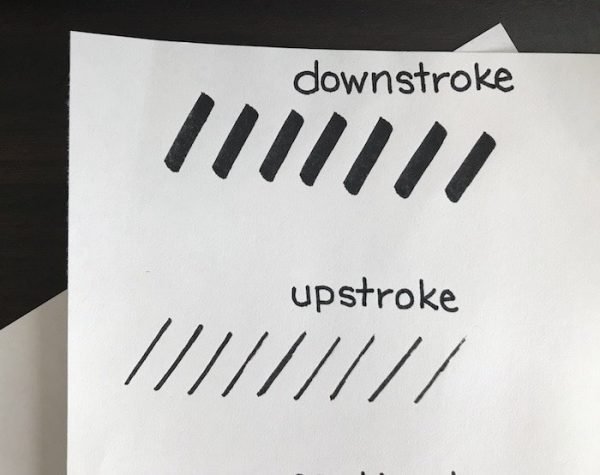 downstroke
upstroke